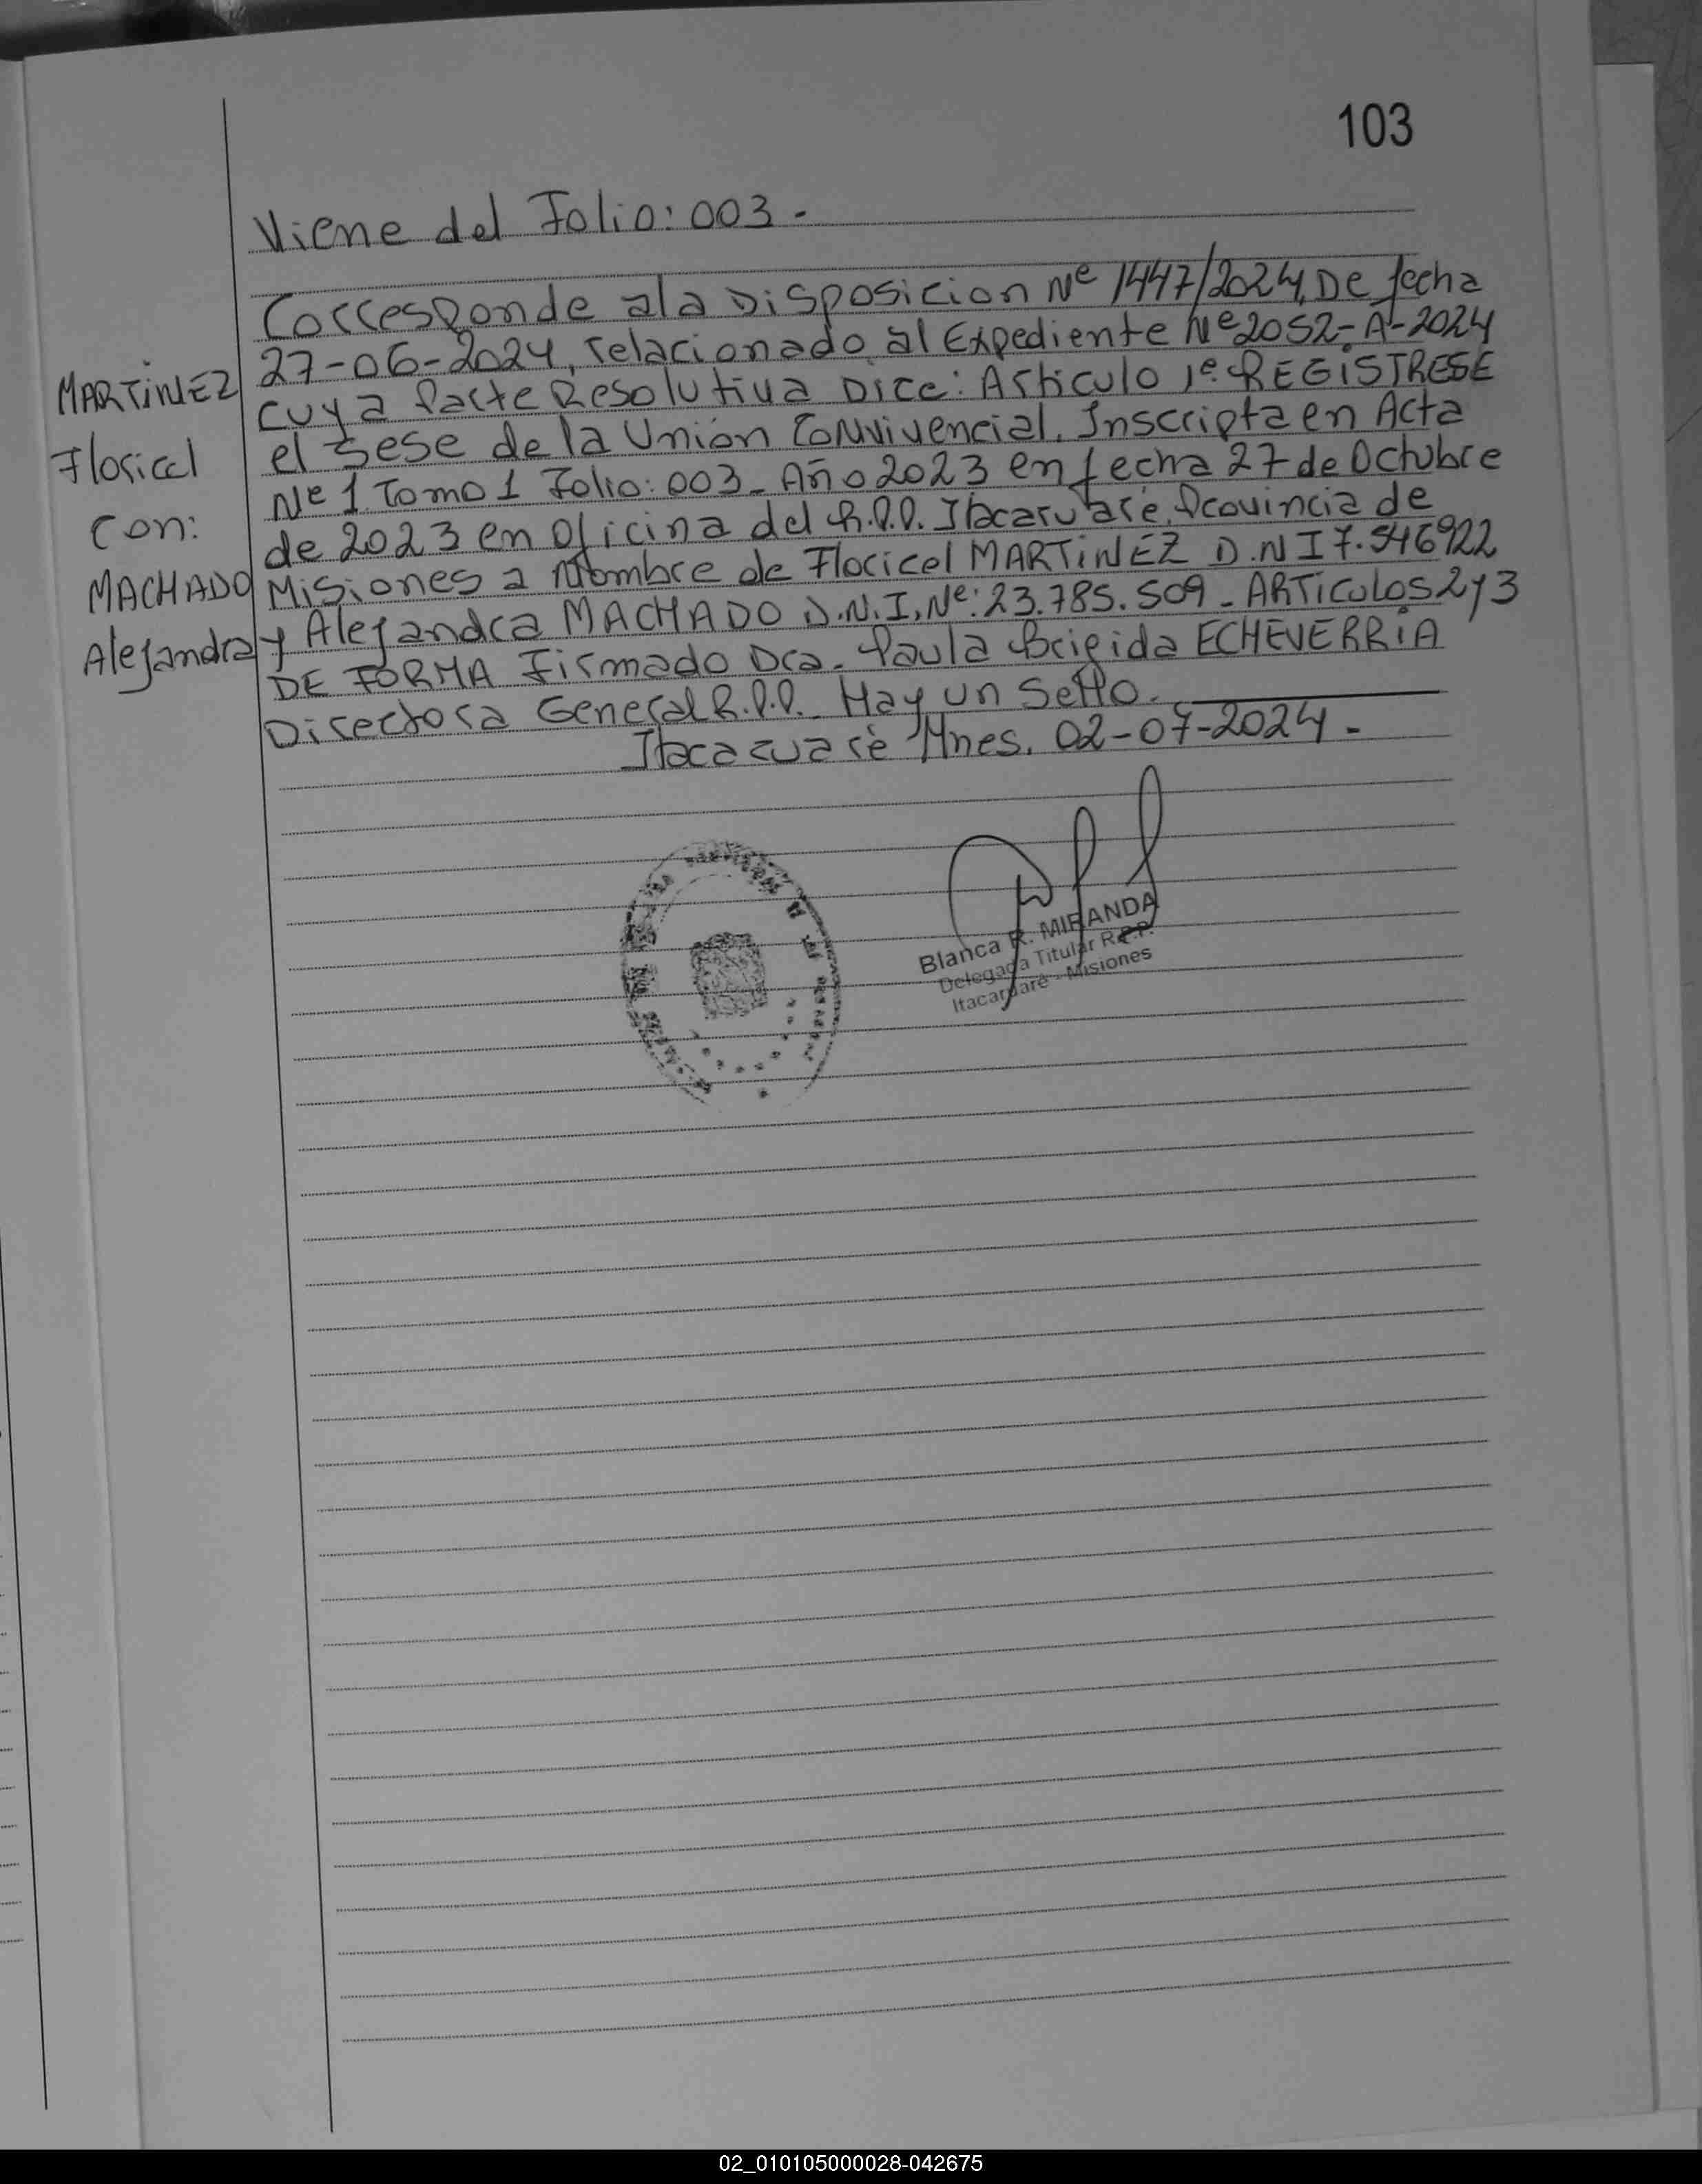 103
Viene del Folio: 003 -
Corresponde a la Disposicion Nº 1447/2024, De fecha
27-06-2024, relacionado al Expediente Nº 2052-A-2024
cuya Parte Resolutiva Dice: Articulo 1º REGISTRESE
el sese de la Unión Convivencial. Inscripta en Acta
Nº 1 Tomo 1 Folio: 003 - Año 2023 en fecha 27 de Octubre
de 2023 en Oficina del R.P.P. Itacaruaré, Provincia de
Misiones a Nombre de Floricel MARTiNEZ D.N I 7.546922
y Alejandra MACHADO D.N.I. Nº: 23.785.509 - ARTiculos 2 y 3
DE FORMA Firmado Dra. Paula Brigida ECHEVERRiA
Directora General R.P.P. Hay un Sello.
Itacaruaré Mnes. 02-07-2024 -
MARTiNEZ
Floricel
Con:
MACHADO
Alejandra
Blanca R. MIRANDA
Delegada Titular R.P.P.
Itacaruaré - Misiones
02_010105000028-042675